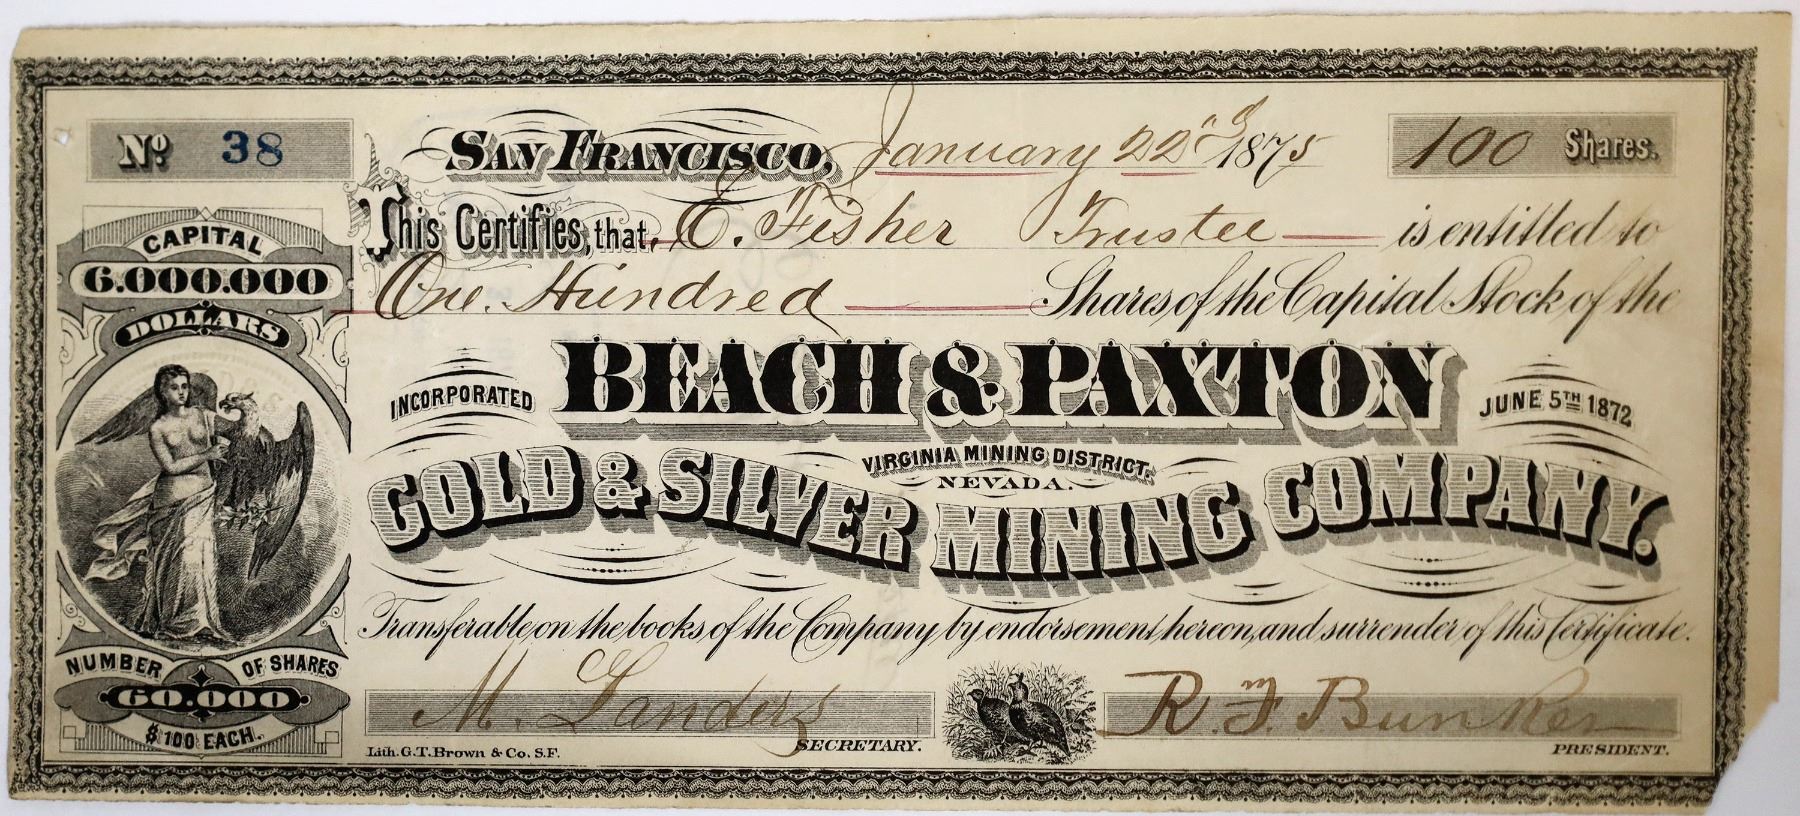 Nº 38
SAN FRANCISCO, January 22nd 1875
100 Shares.
This Certifies, that E. Fisher Trustee is entitled to
One Hundred Shares of the Capital Stock of the
CAPITAL
6.000.000
DOLLARS
INCORPORATED
BEACH & PAXTON
JUNE 5TH 1872
VIRGINIA MINING DISTRICT.
NEVADA.
GOLD & SILVER MINING COMPANY.
Transferable on the books of the Company by endorsement hereon, and surrender of this Certificate.
NUMBER OF SHARES
60.000
$100 EACH.
M. Landers
SECRETARY.
R. F. Bunker
PRESIDENT.
Lith. G.T. Brown & Co. S.F.